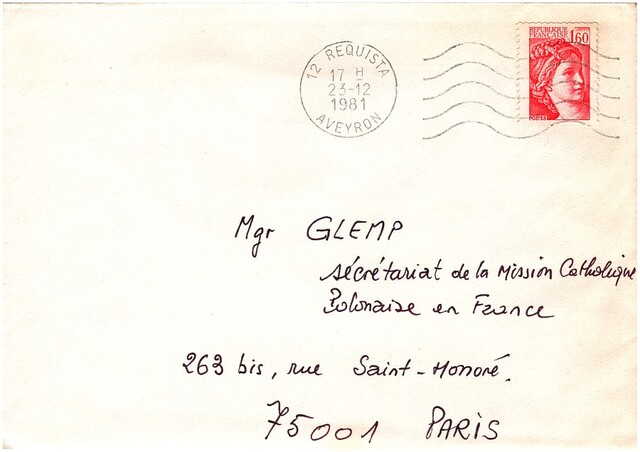 RÉPUBLIQUE
FRANÇAISE 1,60
12 REQUISTA
17 H
23-12
1981
AVEYRON
Mgr GLEMP
sécrétariat de la Mission Catholique
Polonaise en France
263 bis, rue Saint-Honoré.
75001 PARIS